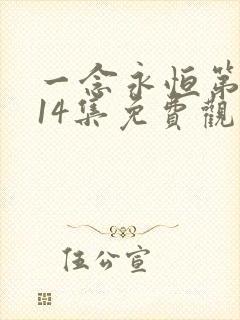 一念永恒第
14集免費觀
伍公宣